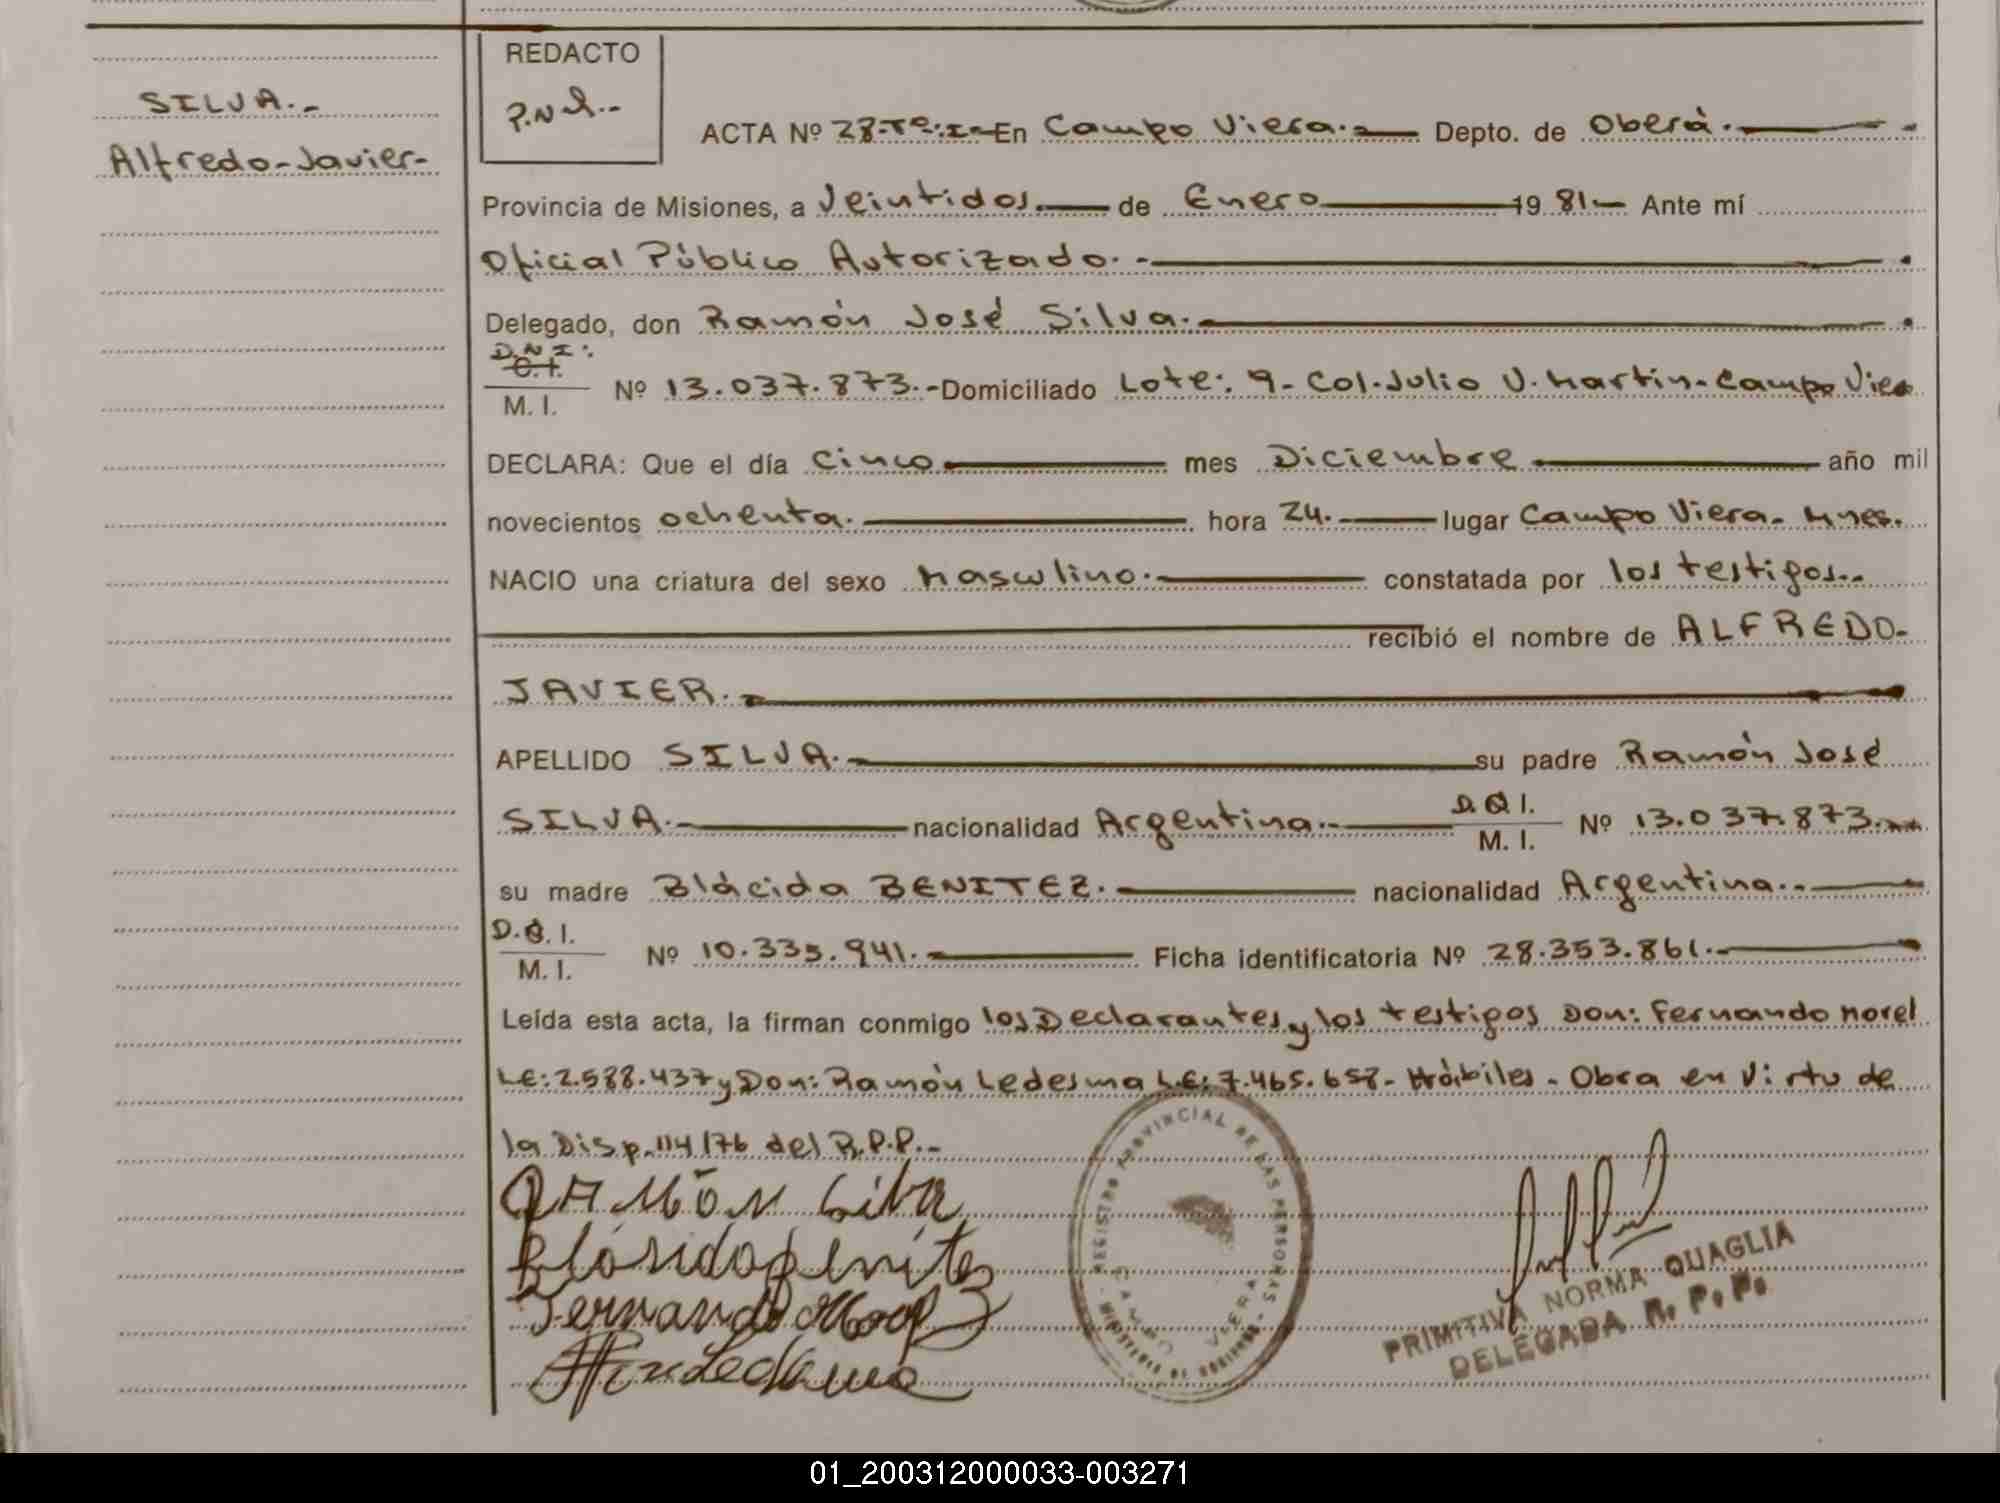 SILVA.-
Alfredo-Javier-
REDACTO
P.N.Q.--
ACTA Nº 28-Tº:I- En Campo Viera.- Depto. de Oberá.-
Provincia de Misiones, a Veintidos.- de Enero 1981.- Ante mí
Oficial Público Autorizado.-
Delegado, don Ramón José Silva.-
D.N.I:
C.I.
M. I.
Nº 13.037.873.-Domiciliado Lote: 9- Col.Julio U. Martin-Campo Viera
DECLARA: Que el día Cinco mes Diciembre año mil
novecientos ochenta. hora 24. lugar Campo Viera- Mnes.
NACIO una criatura del sexo Masculino.- constatada por los testigos.-
recibió el nombre de ALFREDO-
JAVIER.-
APELLIDO SILVA.- su padre Ramón José
SILVA.- nacionalidad Argentina.- D. I. M. I. Nº 13.037.873.--
su madre Blácida BENITEZ.- nacionalidad Argentina.-
D. I. M. I. Nº 10.335.941.- Ficha identificatoria Nº 28.353.861.-
Leída esta acta, la firman conmigo los Declarantes y los testigos Don: Fernando Morel
LE: 2.588.437 y Don: Ramón Ledesma L.E: 7.465.658- Hábiles- Obra en Virtu de
la Disp. 114/76 del R.P.P.-
RAMÓN Silva
Blásida Benítez
Fernando Morel
Ledesma
REGISTRO PROVINCIAL DE LAS PERSONAS
MINISTERIO DE GOBIERNO
CAMPO VIERA
PRIMITIVA NORMA QUAGLIA
DELEGADA R. P. P.
01_200312000033-003271